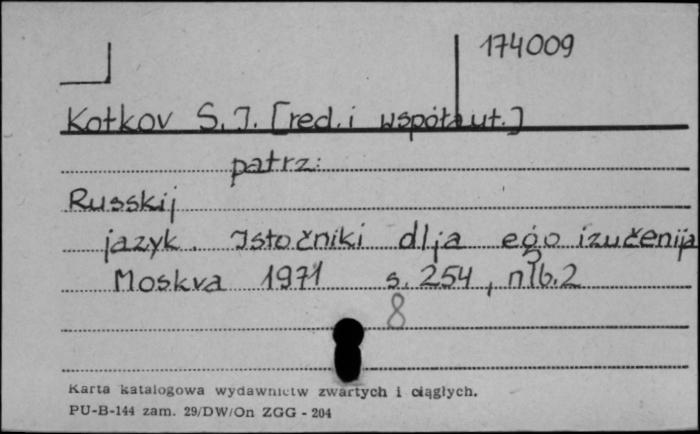 174009
Kotkov S.I. [red. i współaut.]
patrz:
Russkij
jazyk. Istočniki dlja ego izučenija
Moskva 1971 s. 254, nlb. 2
8
Karta katalogowa wydawnictw zwartych i ciągłych.
PU-B-144 zam. 29/DW/On ZGG - 204